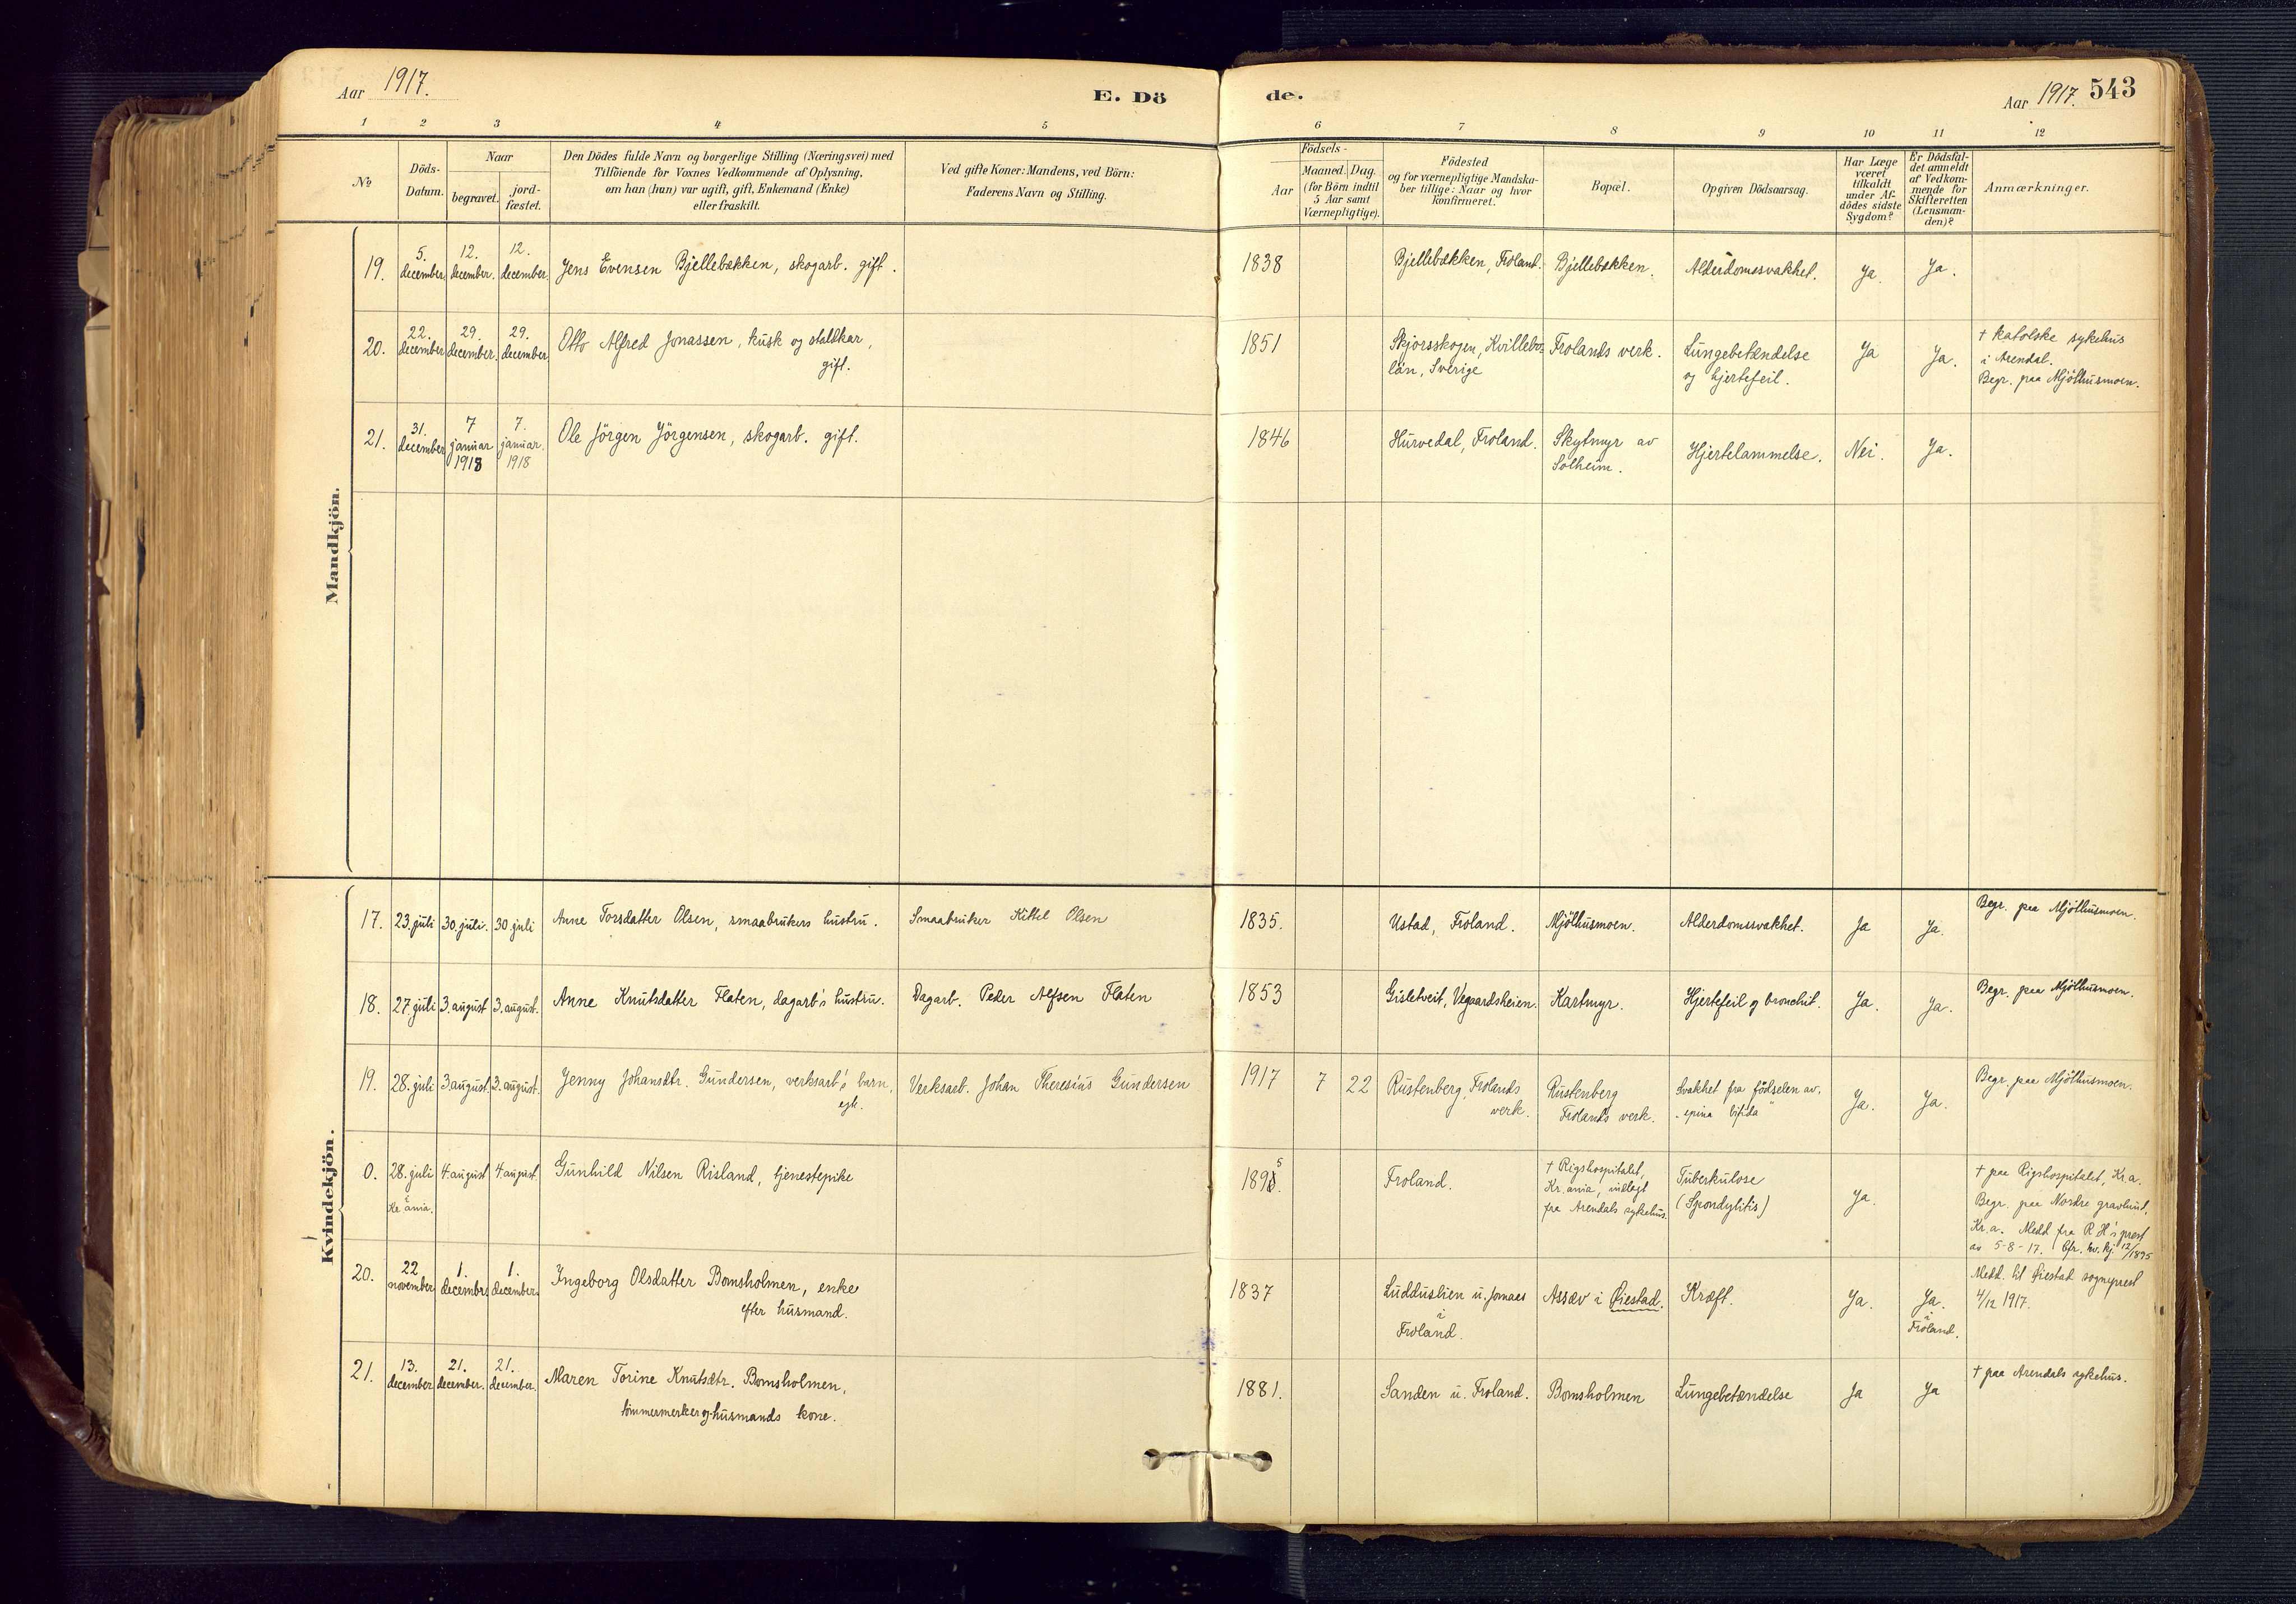 Aar 1917.
E. Dö
de.
Aar 1917. 543
1 2 3 4 5 6 7 8 9 10 11 12
No
Döds-
Datum.
Naar
begravet.
jord-
fæstet.
Den Dödes fulde Navn og borgerlige Stilling (Næringsvei) med
Tilföiende for Voxnes Vedkommende af Oplysning,
om han (hun) var ugift, gift, Enkemand (Enke)
eller fraskilt.
Ved gifte Koner: Mandens, ved Börn:
Faderens Navn og Stilling.
Födsels-
Aar
Maaned. Dag.
(for Börn indtil
5 Aar samt
Værnepligtige).
Födested
og for værnepligtige Mandska-
ber tillige: Naar og hvor
konfirmeret.
Bopæl.
Opgiven Dödsaarsag.
Har Læge
været
tilkaldt
under Af-
dödes sidste
Sygdom?
Er Dödsfal-
det anmeldt
af Vedkom-
mende for
Skifteretten
(Lensman-
den)?
Anmærkninger.
Mandkjön.
19. 5. december 12. december. 12. december. Jens Evensen Bjellebækken, skogarb. gift. 1838 Bjellebækken, Froland. Bjellebækken. Alderdomssvakhet. Ja. Ja.
20. 22. december 29. december. 29. december Otto Alfred Jonassen, kusk og staldkar,
gift.
1851 Skjorsskogen, Kvillebo-
län, Sverige
Frolands verk. Lungebetændelse
og hjertefeil.
Ja Ja.
† katolske sykehus
i Arendal.
Begr. paa Mjölhusmoen.
21. 31. december 7 januar 1918 7. januar. 1918 Ole Jörgen Jörgensen, skogarb. gift. 1846 Hurvedal, Froland. Skytmyr av
Solheim.
Hjertelammelse. Nei. Ja.
Kvindekjön.
17. 23. juli 30. juli. 30 juli Anne Torsdatter Olsen, smaabrukers hustru. Smaabruker Kittel Olsen 1835. Ustad, Froland. Mjölhusmoen. Alderdomssvakhet. Ja Ja. Begr. paa Mjölhusmoen.
18. 27. juli 3. august 3. august. Anne Knutsdatter Flaten, dagarb's hustru. Dagarb. Peder Alfsen Flaten 1853 Gisletveit, Vegaardsheien. Kartmyr. Hjertefeil og bronchit. Ja. Ja. Begr. paa Mjölhusmoen.
19. 28. juli 3. august. 3. august. Jenny Johansdtr. Gundersen, verksarb's barn,
egte.
Verksarb. Johan Theresius Gundersen 1917 7 22 Rustenberg, Frolands
verk.
Rustenberg
Frolands verk.
Svakhet fra födselen av.
"spina bifida"
Ja. Ja. Begr. paa Mjölhusmoen.
0. 28. juli i Kr.ania. 4 august 4 august Gunhild Nilsen Risland, tjenestepike 1895. Froland.
† Rigshospitalet,
Kr.ania, indlagt
fra Arendals sykehus.
Tuberkulose
(Spondylitis)
Ja.
† paa Rigshospitalet, Kr.a.
Begr. paa Nordre gravlund,
Kr.a. Medd fra R.H's prest
av 5-8-17. Cfr. kv.kj. 12/1895
20. 22 november 1. decembr. 1. december. Ingeborg Olsdatter Bomsholmen, enke
efter husmand.
1837 Lüddustien u. Jomaas
i
Froland.
Assæv i Øiestad. Kræft. Ja. Ja.
i
Froland.
Medd. til Øiestad sogneprest
4/12 1917.
21. 13. december 21. december. 21. december. Maren Torine Knutsdtr. Bomsholmen,
tömmermerker og husmands kone.
1881. Sanden u. Froland. Bomsholmen Lungebetændelse Ja Ja † paa Arendals sykehus.